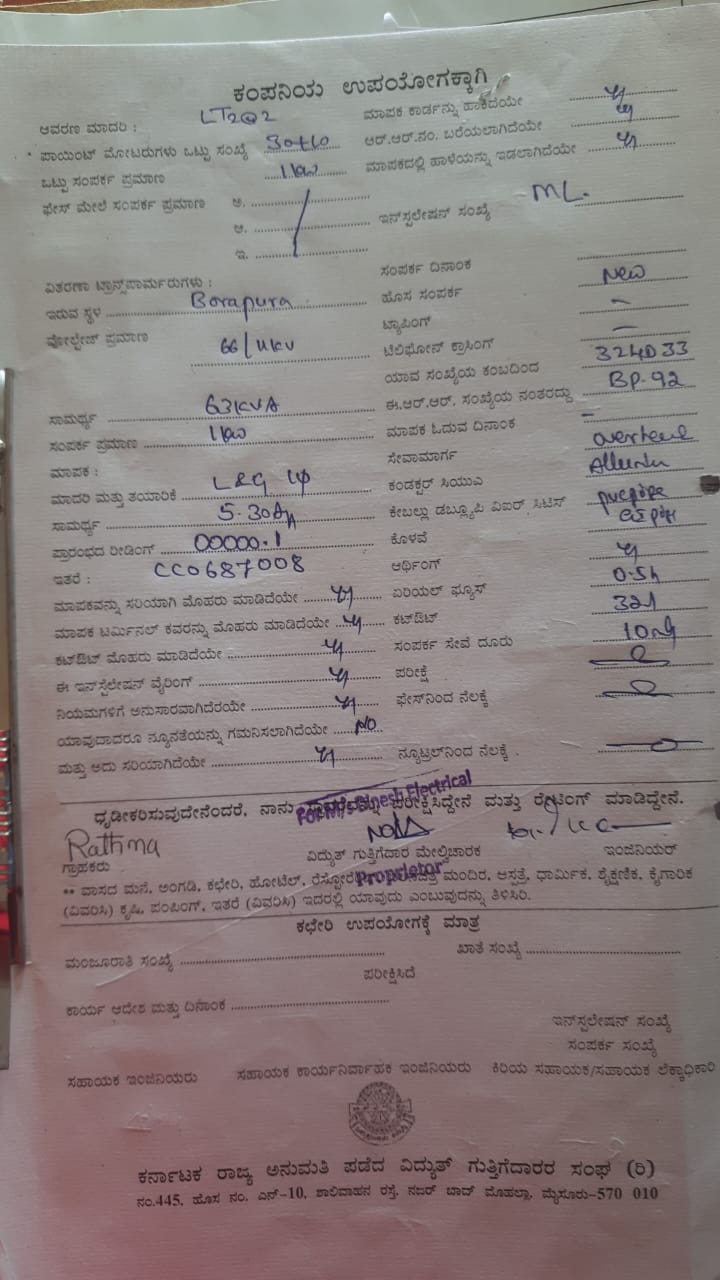 ಕಂಪನಿಯ ಉಪಯೋಗಕ್ಕಾಗಿ
ಆವರಣ ಮಾದರಿ : LT2@2 ಮಾಪಕ ಕಾರ್ಡನ್ನು ಹಾಕಿದೆಯೇ
ಪಾಯಿಂಟ್ ಮೋಟರುಗಳು ಒಟ್ಟು ಸಂಖ್ಯೆ ಆರ್.ಆರ್.ನಂ. ಬರೆಯಲಾಗಿದೆಯೇ
ಒಟ್ಟು ಸಂಪರ್ಕ ಪ್ರಮಾಣ 1kw ಮಾಪಕದಲ್ಲಿ ಹಾಳೆಯನ್ನು ಇಡಲಾಗಿದೆಯೇ
ಫೇಸ್ ಮೇಲೆ ಸಂಪರ್ಕ ಪ್ರಮಾಣ ಅ.
ಆ. ಇನ್‌ಸ್ಟಲೇಷನ್ ಸಂಖ್ಯೆ ML.
ಇ.
ವಿತರಣಾ ಟ್ರಾನ್ಸ್‌ಫಾರ್ಮರುಗಳು : ಸಂಪರ್ಕ ದಿನಾಂಕ
ಇರುವ ಸ್ಥಳ Borapura ಹೊಸ ಸಂಪರ್ಕ New
ವೋಲ್ಟೇಜ್ ಪ್ರಮಾಣ 66/11kv ಟ್ಯಾಪಿಂಗ್ -
ಟೆಲಿಫೋನ್ ಕ್ರಾಸಿಂಗ್ -
ಯಾವ ಸಂಖ್ಯೆಯ ಕಂಬದಿಂದ 324D33
ಸಾಮರ್ಥ್ಯ 63KVA ಈ.ಆರ್.ಆರ್. ಸಂಖ್ಯೆಯ ನಂತರದ್ದು BP-92
ಸಂಪರ್ಕ ಪ್ರಮಾಣ 1kw ಮಾಪಕ ಓದುವ ದಿನಾಂಕ -
ಮಾಪಕ : ಸೇವಾಮಾರ್ಗ
ಮಾದರಿ ಮತ್ತು ತಯಾರಿಕೆ L&G 1φ ಕಂಡಕ್ಟರ್ ಸಿಯುವಿ
ಸಾಮರ್ಥ್ಯ 5-30A ಕೇಬಲ್ಲು ಡಬ್ಲ್ಯೂಪಿ ವಿಐರ್ ಸಿಟಿಸ್
ಪ್ರಾರಂಭದ ರೀಡಿಂಗ್ 00000.1 ಕೊಳವೆ
ಇತರೆ : CC0687008 ಆರ್ಥಿಂಗ್
ಮಾಪಕವನ್ನು ಸರಿಯಾಗಿ ಮೊಹರು ಮಾಡಿದೆಯೇ ಏರಿಯಲ್ ಫ್ಯೂಸ್
ಮಾಪಕ ಟರ್ಮಿನಲ್ ಕವರನ್ನು ಮೊಹರು ಮಾಡಿದೆಯೇ ಕಟ್‌ಔಟ್
ಕಟ್‌ಔಟ್ ಮೊಹರು ಮಾಡಿದೆಯೇ ಸಂಪರ್ಕ ಸೇವೆ ದೂರು
ಈ ಇನ್‌ಸ್ಟಲೇಷನ್ ವೈರಿಂಗ್ ಪರೀಕ್ಷೆ
ನಿಯಮಗಳಿಗೆ ಅನುಸಾರವಾಗಿದೆರಯೇ ಫೇಸ್‌ನಿಂದ ನೆಲಕ್ಕೆ
ಯಾವುದಾದರೂ ನ್ಯೂನತೆಯನ್ನು ಗಮನಿಸಲಾಗಿದೆಯೇ NO
ಮತ್ತು ಅದು ಸರಿಯಾಗಿದೆಯೇ ನ್ಯೂಟ್ರಲ್‌ನಿಂದ ನೆಲಕ್ಕೆ
For M/s Dinesh Electrical
ಧೃಡೀಕರಿಸುವುದೇನೆಂದರೆ, ನಾನು ಪರೀಕ್ಷಿಸಿದ್ದೇನೆ ಮತ್ತು ರೇಟಿಂಗ್ ಮಾಡಿದ್ದೇನೆ.
Rathma
ಗ್ರಾಹಕರು ವಿದ್ಯುತ್ ಗುತ್ತಿಗೆದಾರ ಮೇಲ್ವಿಚಾರಕ ಇಂಜಿನಿಯರ್
Proprietor
** ವಾಸದ ಮನೆ, ಅಂಗಡಿ, ಕಛೇರಿ, ಹೋಟೆಲ್, ಮಂದಿರ, ಆಸ್ಪತ್ರೆ, ಧಾರ್ಮಿಕ, ಶೈಕ್ಷಣಿಕ, ಕೈಗಾರಿಕ
(ವಿವರಿಸಿ) ಕೃಷಿ, ಪಂಪಿಂಗ್, ಇತರೆ (ವಿವರಿಸಿ) ಇದರಲ್ಲಿ ಯಾವುದು ಎಂಬುವುದನ್ನು ತಿಳಿಸಿರಿ.
ಕಛೇರಿ ಉಪಯೋಗಕ್ಕೆ ಮಾತ್ರ
ಮಂಜೂರಾತಿ ಸಂಖ್ಯೆ ಖಾತೆ ಸಂಖ್ಯೆ
ಪರೀಕ್ಷಿಸಿದೆ
ಕಾರ್ಯ ಆದೇಶ ಮತ್ತು ದಿನಾಂಕ
ಇನ್‌ಸ್ಟಲೇಷನ್ ಸಂಖ್ಯೆ
ಸಂಪರ್ಕ ಸಂಖ್ಯೆ
ಸಹಾಯಕ ಇಂಜಿನಿಯರು ಸಹಾಯಕ ಕಾರ್ಯನಿರ್ವಾಹಕ ಇಂಜಿನಿಯರು ಕಿರಿಯ ಸಹಾಯಕ/ಸಹಾಯಕ ಲೆಕ್ಕಾಧಿಕಾರಿ
ಕರ್ನಾಟಕ ರಾಜ್ಯ ಅನುಮತಿ ಪಡೆದ ವಿದ್ಯುತ್ ಗುತ್ತಿಗೆದಾರರ ಸಂಘ (ರಿ)
ನಂ.445, ಹೊಸ ನಂ. ಎನ್-10, ಶಾಲಿವಾಹನ ರಸ್ತೆ, ನಜರ್ ಬಾದ್ ಮೊಹಲ್ಲಾ, ಮೈಸೂರು-570 010